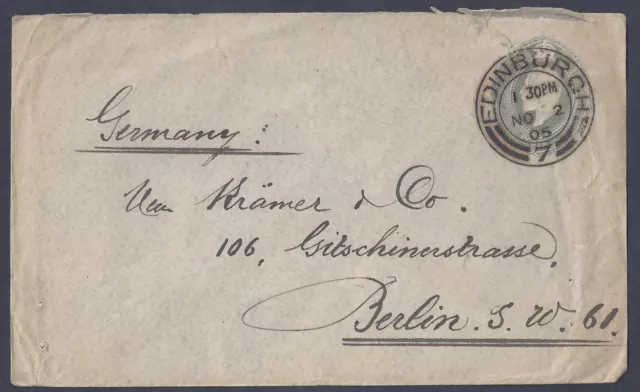 EDINBURGH
1 30PM
NO 2
05
7
Germany:
Krämer & Co.
106, Gitschinerstrasse,
Berlin. S. W. 61.